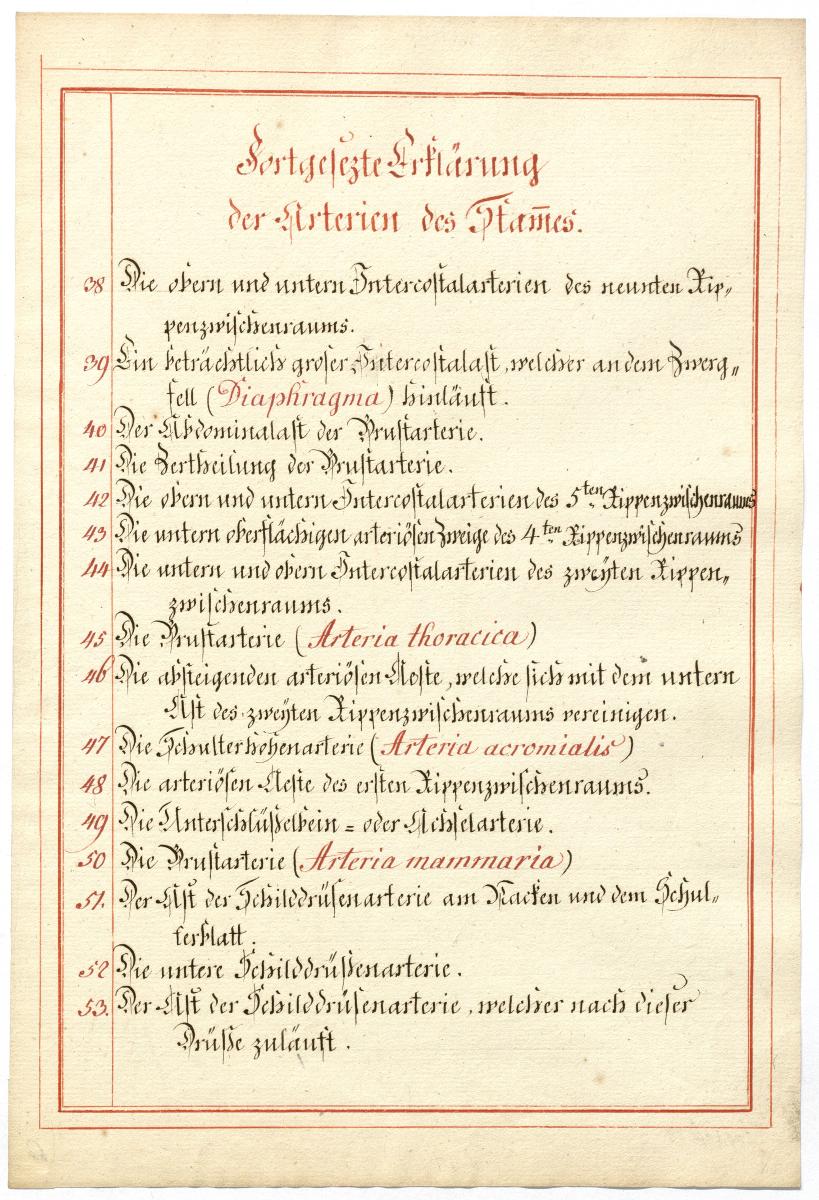 Fortgesezte Erklärung
der Arterien des Stam̄es.
38 Die obern und untern Intercostalarterien des neunten Rip„
penzwischenraums.
39 Ein beträchtlich groser Intercostalast, welcher an dem Zwerg„
fell (Diaphragma) hinläuft.
40 Der Abdominalast der Brustarterie.
41 Die Zertheilung der Brustarterie.
42 Die obern und untern Intercostalarterien des 5ten Rippenzwischenraums
43 Die untern oberflächigen arteriösen Zweige des 4ten Rippenzwischenraums
44 Die untern und obern Intercostalarterien des zweyten Rippen„
zwischenraums.
45 Die Brustarterie (Arteria thoracica)
46 Die absteigenden arteriösen Aeste, welche sich mit dem untern
Ast des zweyten Rippenzwischenraums vereinigen.
47 Die Schulterhöhenarterie (Arteria acromialis)
48 Die arteriösen Aeste des ersten Rippenzwischenraums.
49 Die Unterschlüßelbein = oder Achselarterie.
50 Die Brustarterie (Arteria mammaria)
51. Der Ast der Schilddrüsenarterie am Nacken und dem Schul„
terblatt.
52 Die untere Schilddrüßenarterie.
53. Der Ast der Schilddrüsenarterie, welcher nach dieser
Drüße zuläuft.